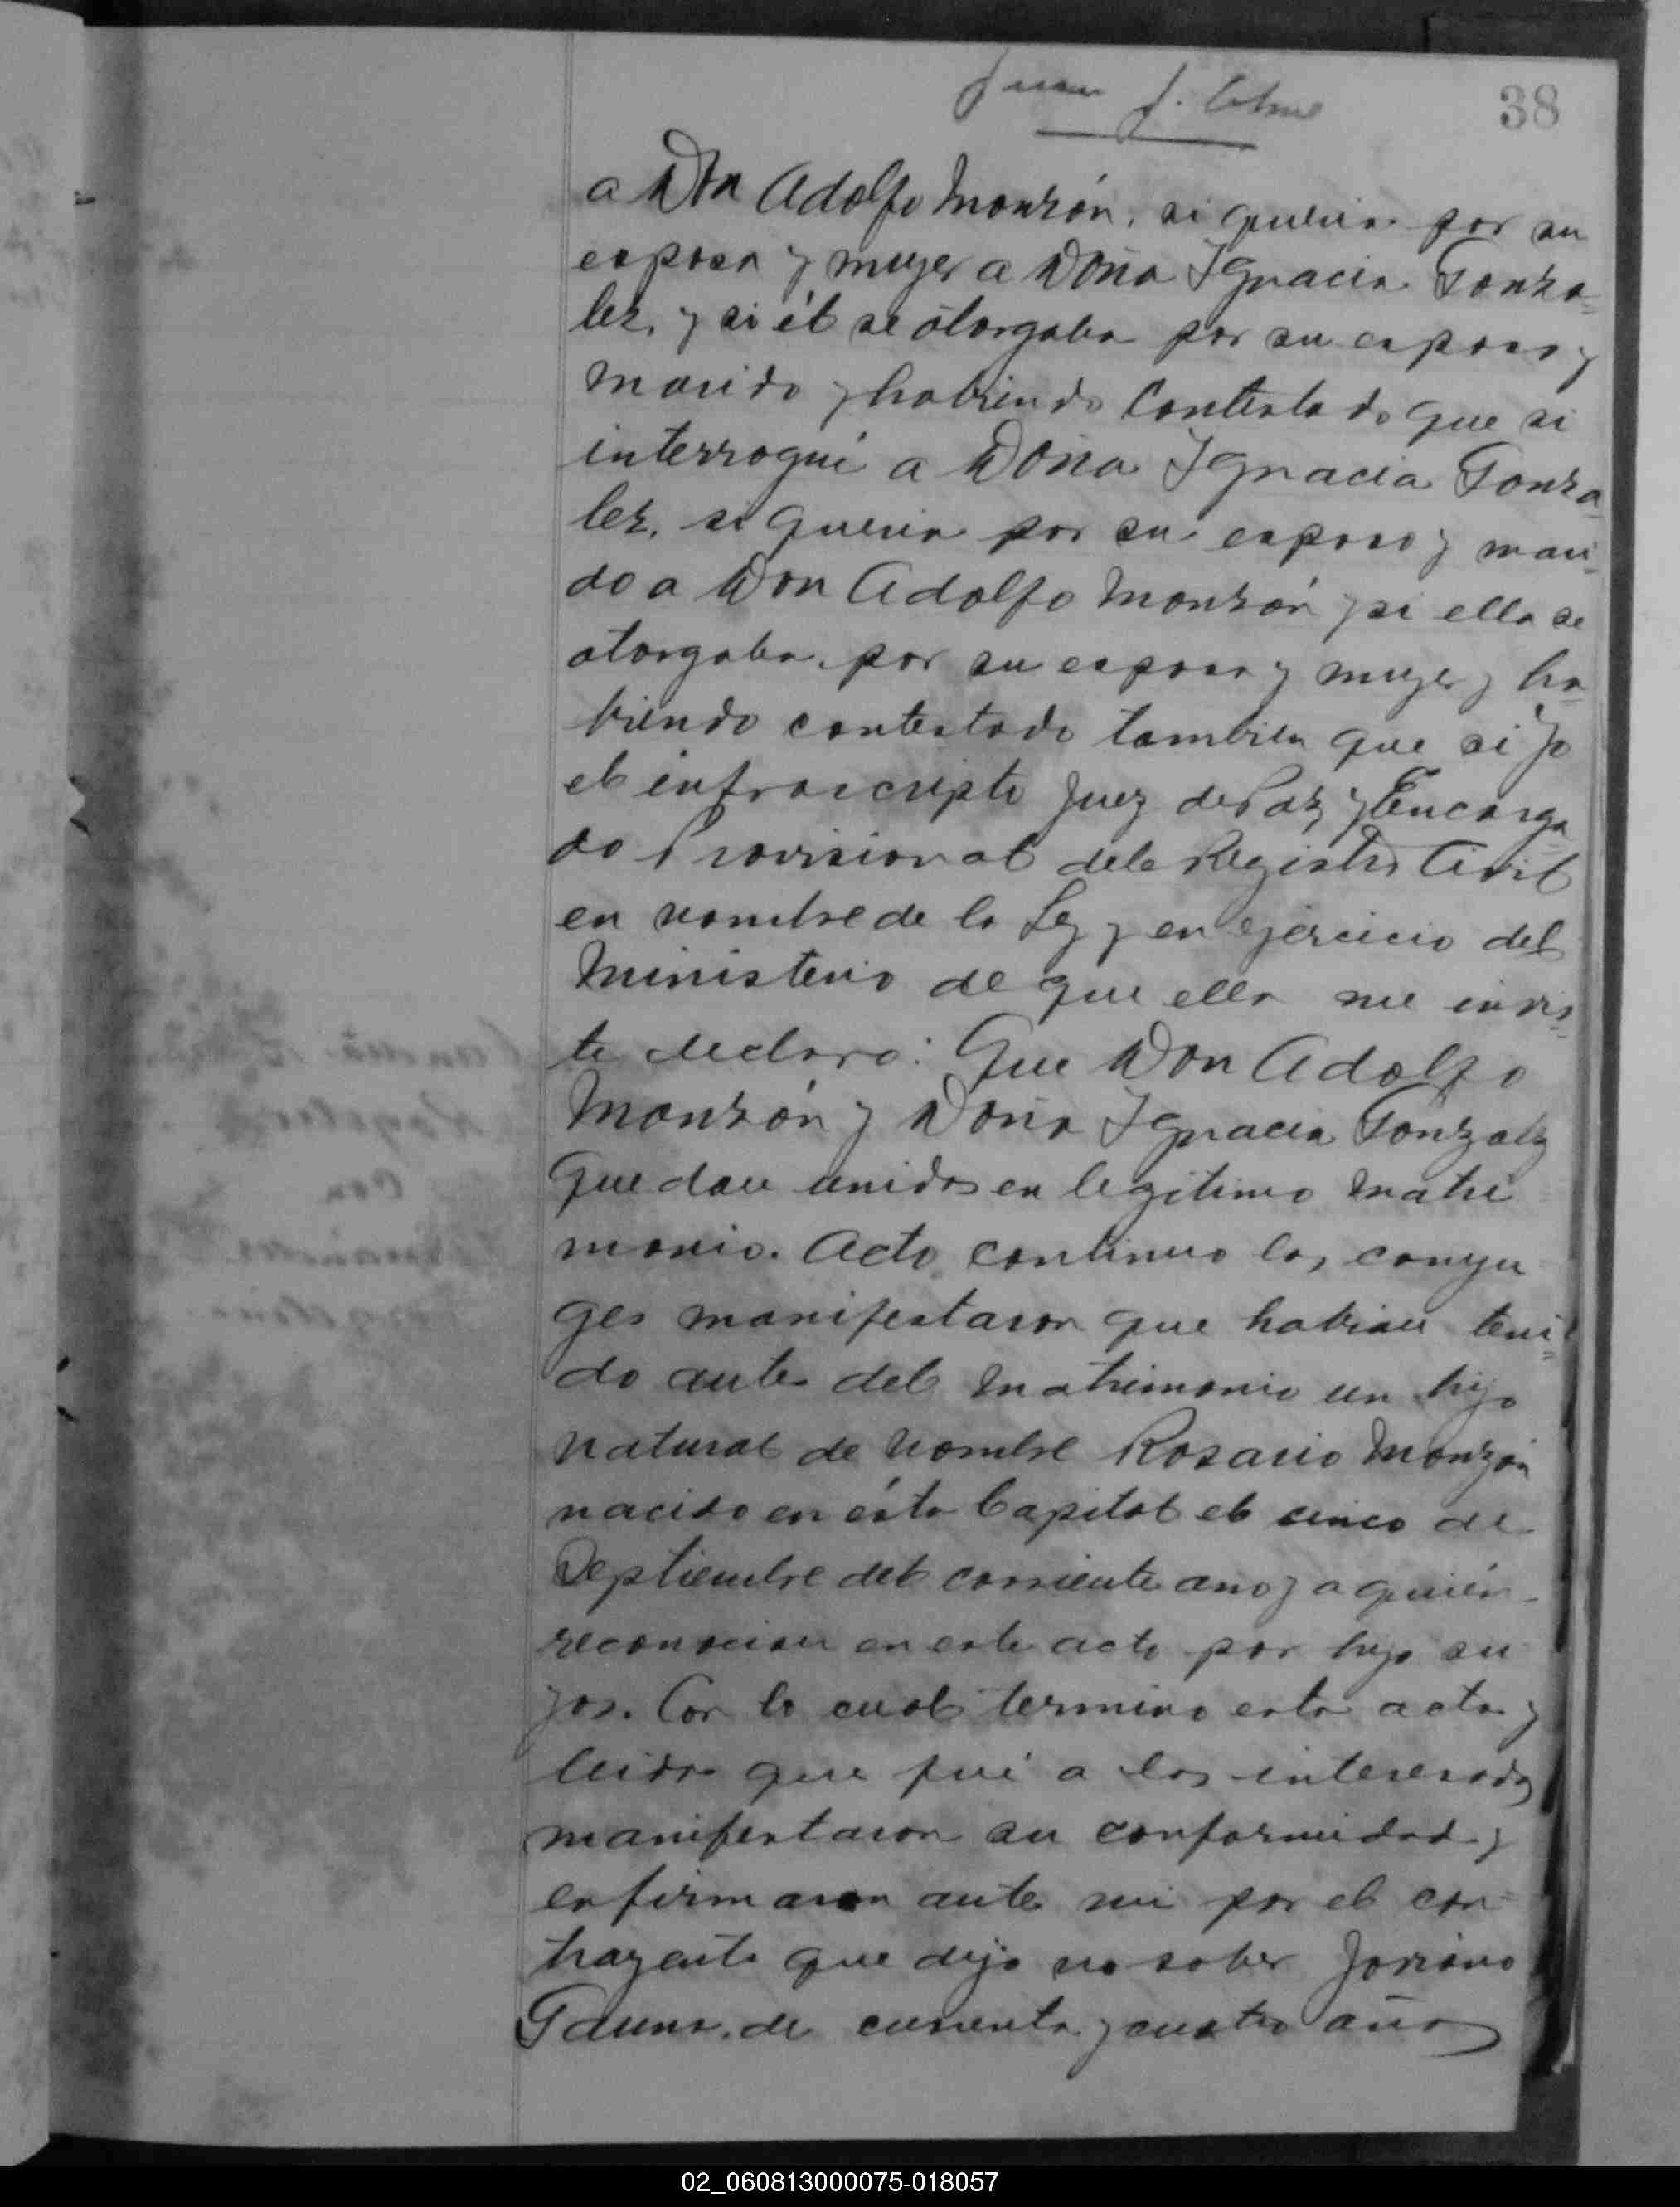 Juan J.
38
a Don Adolfo Monzón, si queria por su
esposa y muger a Doña Ignacia Gonza=
lez, y si él se otorgaba por su esposo y
marido y habiendo Contestado que si
interrogué a Doña Ignacia Gonza=
lez, si queria por su esposo y mari=
do a Don Adolfo Monzón y si ella se
otorgaba por su esposa y muger y ha=
biendo contestado tambien que si Yo
el infrascripto Juez de Paz y Encarga=
do Provisional dele Registro Civil
en nombre de la Ley y en ejercicio del
Ministerio de que ella me invis=
te declaro: Que Don Adolfo
Monzón y Doña Ignacia Gonzalez
quedan unidos en legitimo Matri
monio. Acto continuo los conyu
ges manifestaron que habian teni=
do antes del Matrimonio un hijo
natural de nombre Rosario Monzón
nacido en ésta Capital el cinco de
Septiembre del corriente ano y a quién
reconocian en este acto por hijo su
yos. Con lo cual termino esta acta y
leida que fué a los interesados
manifestaron su conformidad y
la firmaron ante mi por el con=
trayente que dijo no saber
Gauna, de cuarenta y cuatro años
02_060813000075-018057